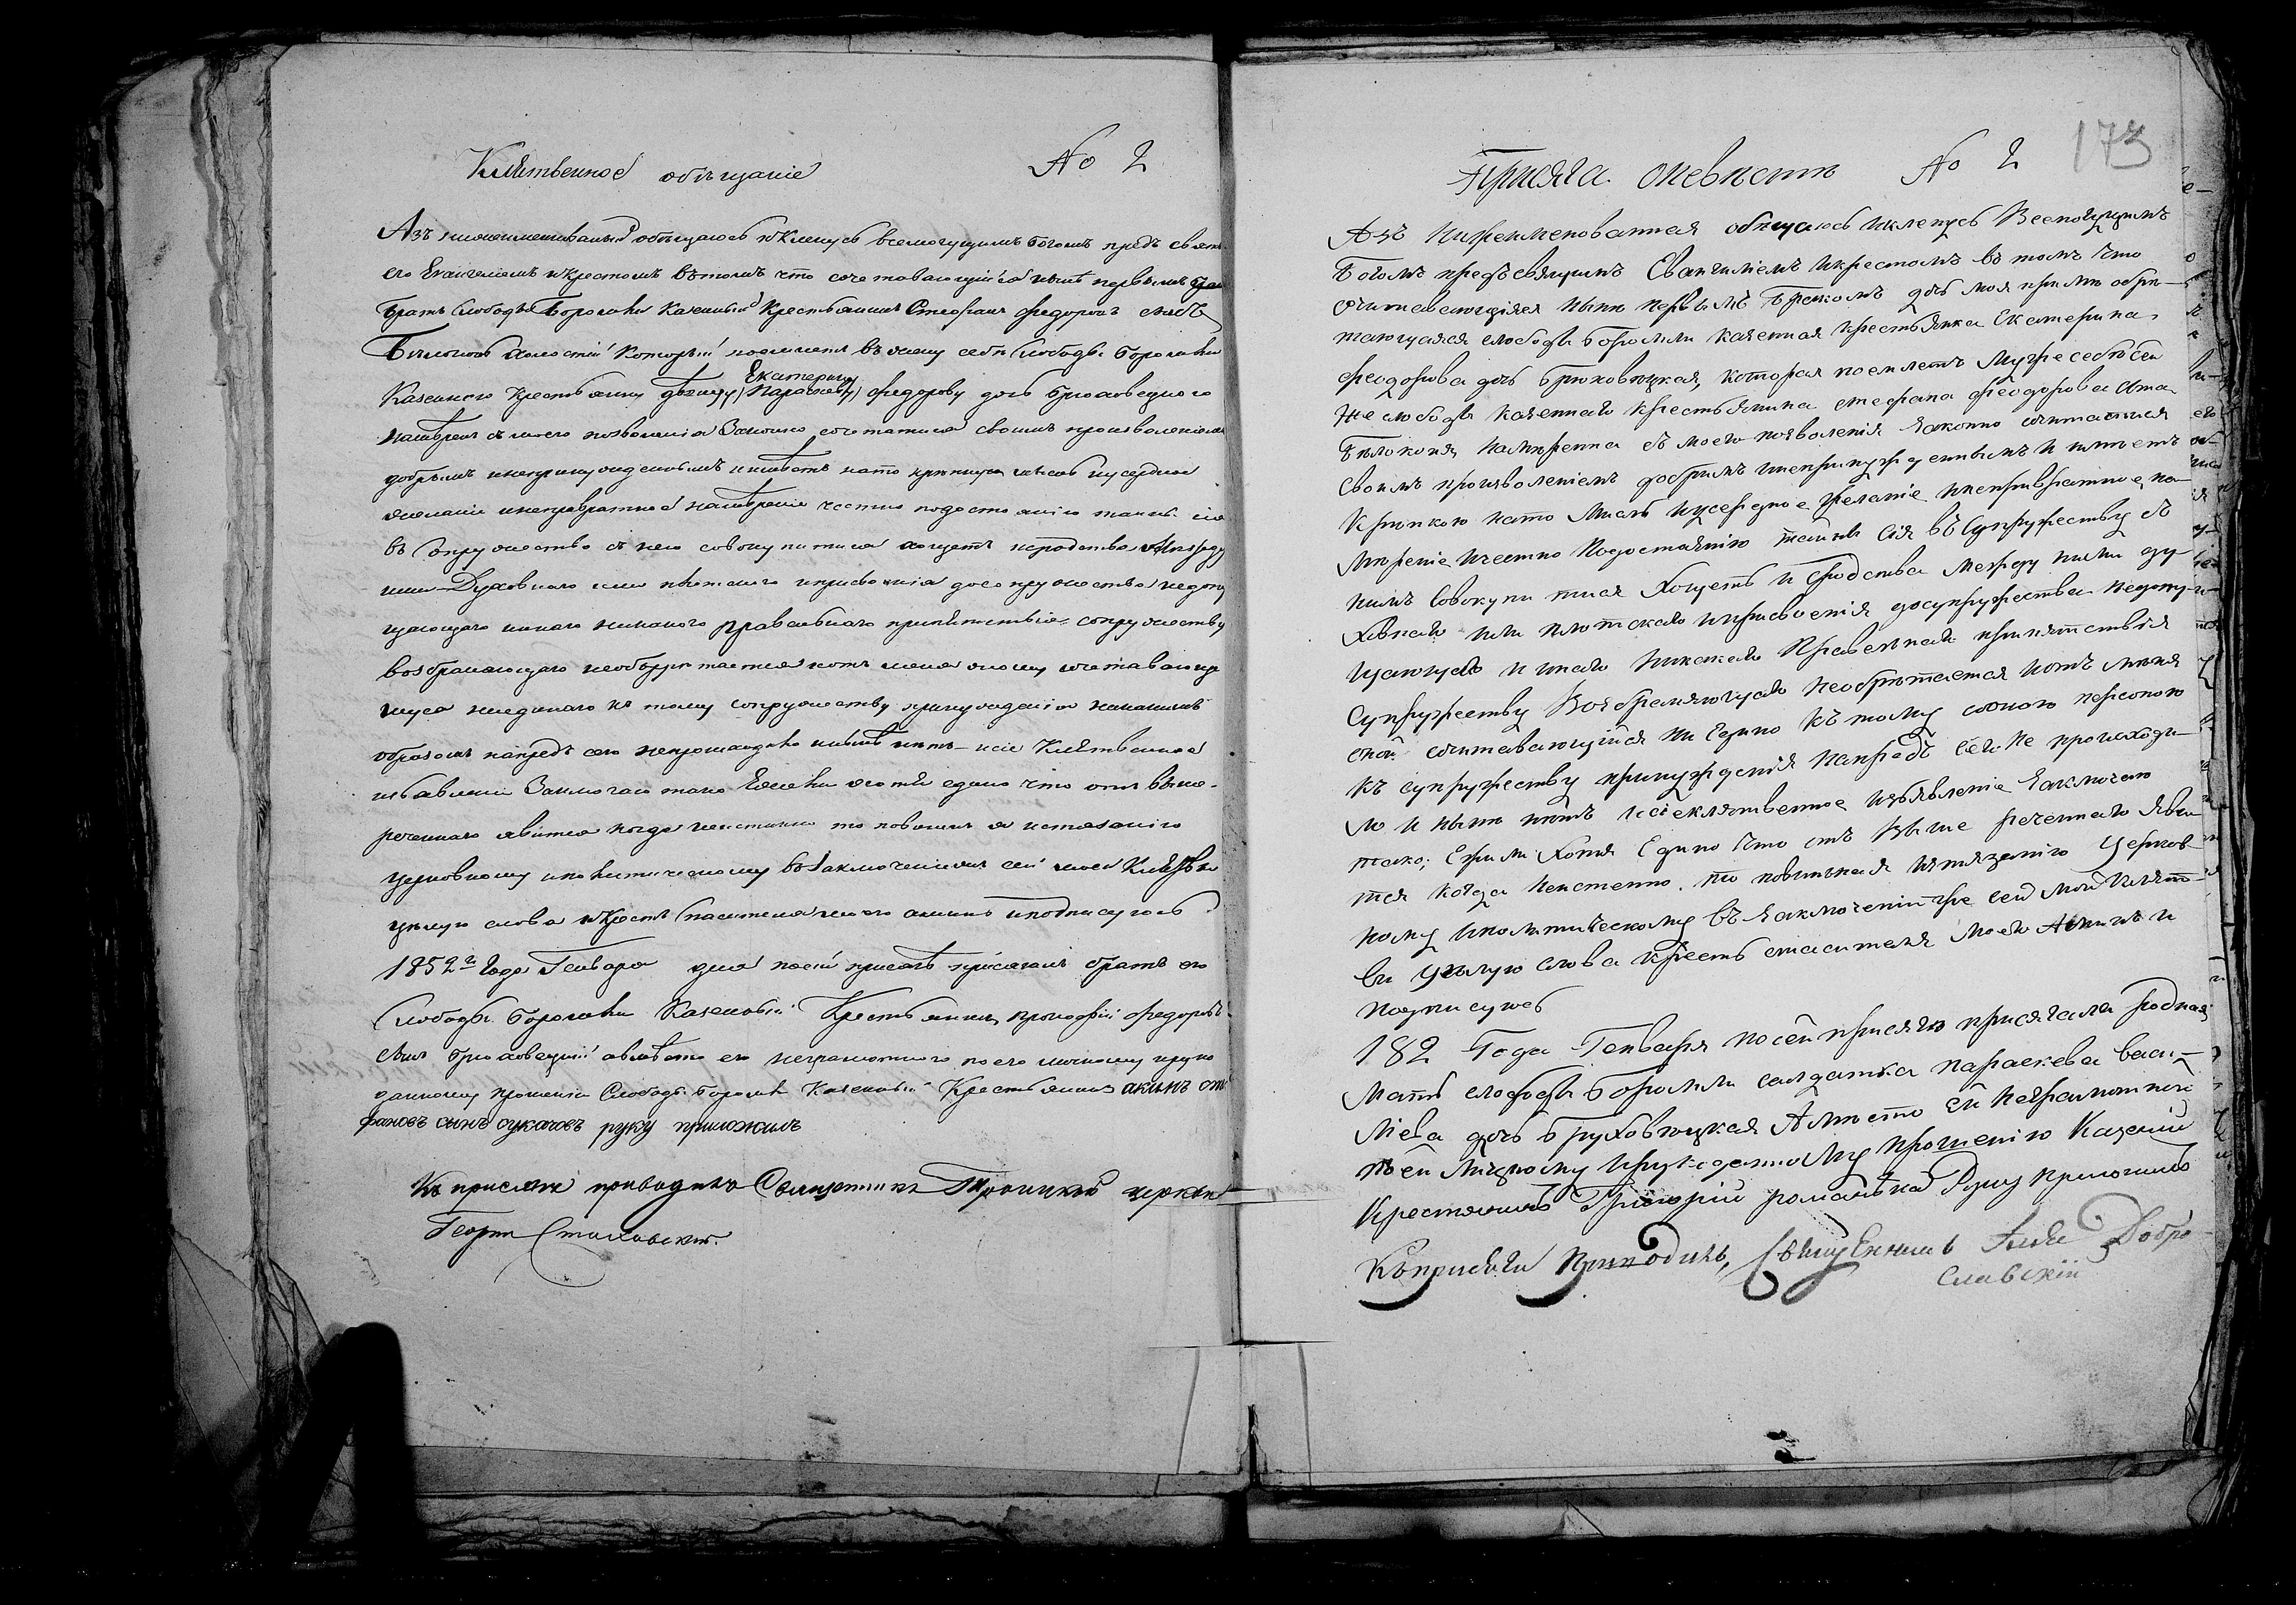 Клятвенное обѣщаніе № 2
Азъ нижеименованный обѣщаюсь и Клянусь всемогущимъ Богомъ предъ святымъ
его Евангеліемъ и крестомъ вътомъ что сочетовающійся нынѣ первымъ
братъ Слободы Боромли Казенный Крестьянинъ Стефанъ Федоровъ сынъ
холостій который поемлетъ въ жену себѣ Слободы Боромли
Казенного Крестьянина дѣвицу (Параскеву) Екатерину Федорову дочь
намѣренъ съ моего позволенія Законно сочетатися своимъ произволеніемъ
добрымъ инепринужденнымъ иимѣетъ нато крѣпкую мысль иусердное
желаніе инепревратное намѣреніе честно подостоянію тайны сія
въ супружество съ нею совокупитися хощетъ исродства Между
ими Духовнаго или плотскаго иприсвоенія досопружества недопу
щающаго инаго никакого правильнаго препятствія сопружеству
возбраняющаго необрѣтается иотъ меня оному сочетавающе
муся ниединаго къ тому сопружеству принужденія никакимъ
образомъ напредь сего непроисходило инынѣ нѣтъ исіе Клятвенное
избавленіе Заключаю тако Ежели хотя едино что отъ выше-
реченнаго явится когда неистинно то повиненъ я истязанію
церковному иполитическому въЗаключеніиже сей моей Клятвы
цѣлую слова иКрестъ Спасителя моего аминь иподписуюсь
1852го года Генваря дня посей присягѣ присягалъ братъ его
Слободы Боромли Казенный Крестьянинъ Прокофій Федоровъ
сынъ авмѣсто его неграмотнаго по его личному ируко
данному прошенію Слободы Боромли Казенный Крестьянинъ акимъ сте
фановъ сынъ сукачовъ руку приложилъ
Къ присягѣ приводилъ Священникъ Троицкой церкви
Георгій
Присяга оневѣстѣ № 2 173
Азъ Нижеименованная обѣщаюсь иклянусь Всемогущимъ
Богомъ предъсвятымъ Евангиліемъ икрестомъ въ томъ что
сочитавающіяся нынѣ первымъ бракомъ дочь моя при мнѣ обрѣ-
тающаяся слободы Боромли казенная крестьянка Екатерина
Феодорова дочь Брюховецкая, которая поемлетъ Мужа себѣ сей
же слободы казеннаго крестьянина стефана феодорова сына
Бѣлоконя, намѣренна съ моего позволенія законно сочитатися
своимъ произволеніемъ добримъ инепринужденнымъ и имѣетъ
Крѣпкою нато Мысль иусердное желаніе инепривратное, на-
мѣреніе ичестно Подостоянію тайны Сія въ Супружеству съ
нимъ Совокупитися Хощетъ и Сродства Между ними ду-
ховнаго или плотскаго иприсвоенія досупружества недопу-
щающаго и инаго никакаго Правельнаго припятствія
Супружеству Возбраняющаго Необрѣтается иотъ меня
оной сочитавающійся ни Едино къ тому
къ супружеству принужденія Напредъ Сего Не происходи-
ло и нынѣ нѣтъ исіеклятвенное избявленіе Заключаю
тако; Ежели Хотя Едино что отъ Выше реченнаго яви-
тся когда Неистенно, то повинная изтязанію Церков-
ному иполитическому въ Заключеніиже сей моей Клят-
ви цѣлую слова крестъ спасителя Моего Аминь и
подписуюсь
182 Года Генваря Посей присягѣ присягала родная
мать слободы Боромли салдатка параскева васи-
ліева дочь Бруховецкая Авмѣсто ей Неграмотной
поей личному ирукоданному прошенію Казеній
Крестянинъ Григорій руку приложилъ
Къприсяги Приводилъ, Священникъ Добро-
славскій